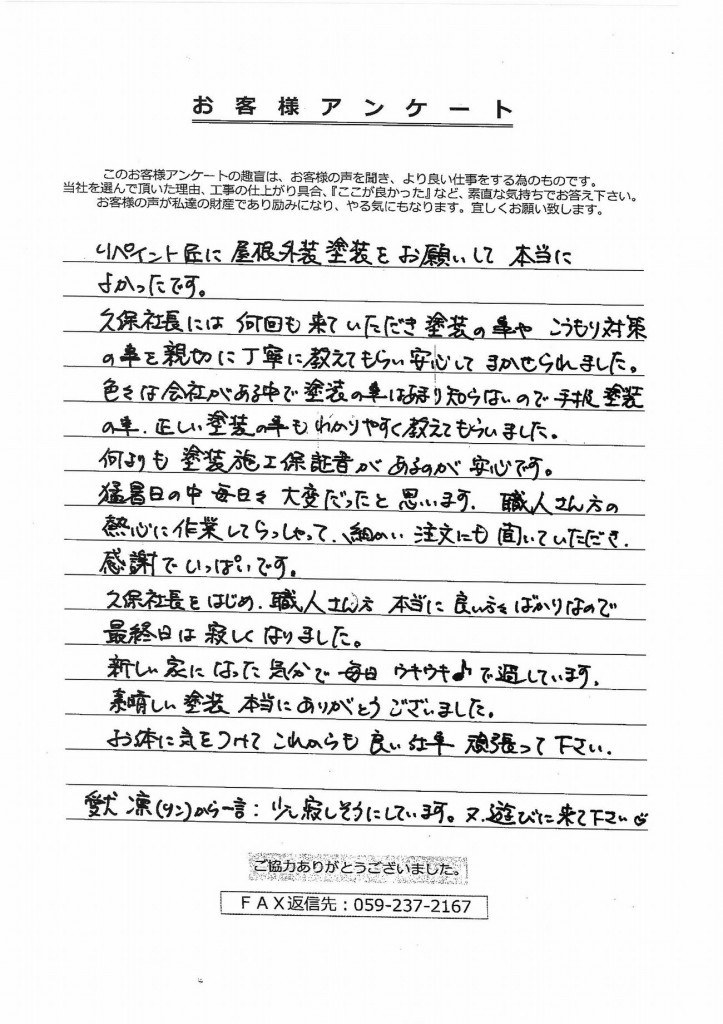 お客様アンケート
このお客様アンケートの趣旨は、お客様の声を聞き、より良い仕事をする為のものです。
当社を選んで頂いた理由、工事の仕上がり具合、『ここが良かった』など、素直な気持ちでお答え下さい。
お客様の声が私達の財産であり励みになり、やる気にもなります。宜しくお願い致します。
リペイント匠に屋根外装塗装をお願いして本当に
よかったです。
久保社長には何回も来ていただき塗装の事やこうもり対策
の事を親切に丁寧に教えてもらい安心してまかせられました。
色々は会社がある中で塗装の事はあまり知らないので手抜塗装
の事.正しい塗装の事もわかりやすく教えてもらいました。
何よりも塗装施工保証書があるのが安心です。
猛暑日の中毎日々大変だったと思います.職人さん方の
熱心に作業してらっしゃって、細かい注文にも聞いていただき.
感謝でいっぱいです。
久保社長をはじめ.職人さん方本当に良い方々ばかりなので
最終日は寂しくなりました。
新しい家になった気分で毎日ウキウキ♪で過しています.
素晴しい塗装本当にありがとうございました。
お体に気をつけてこれからも良い仕事頑張って下さい.
愛犬凛(リン)から一言:少し寂しそうにしています。又.遊びに来て下さい
ご協力ありがとうございました。
FAX返信先:059-237-2167